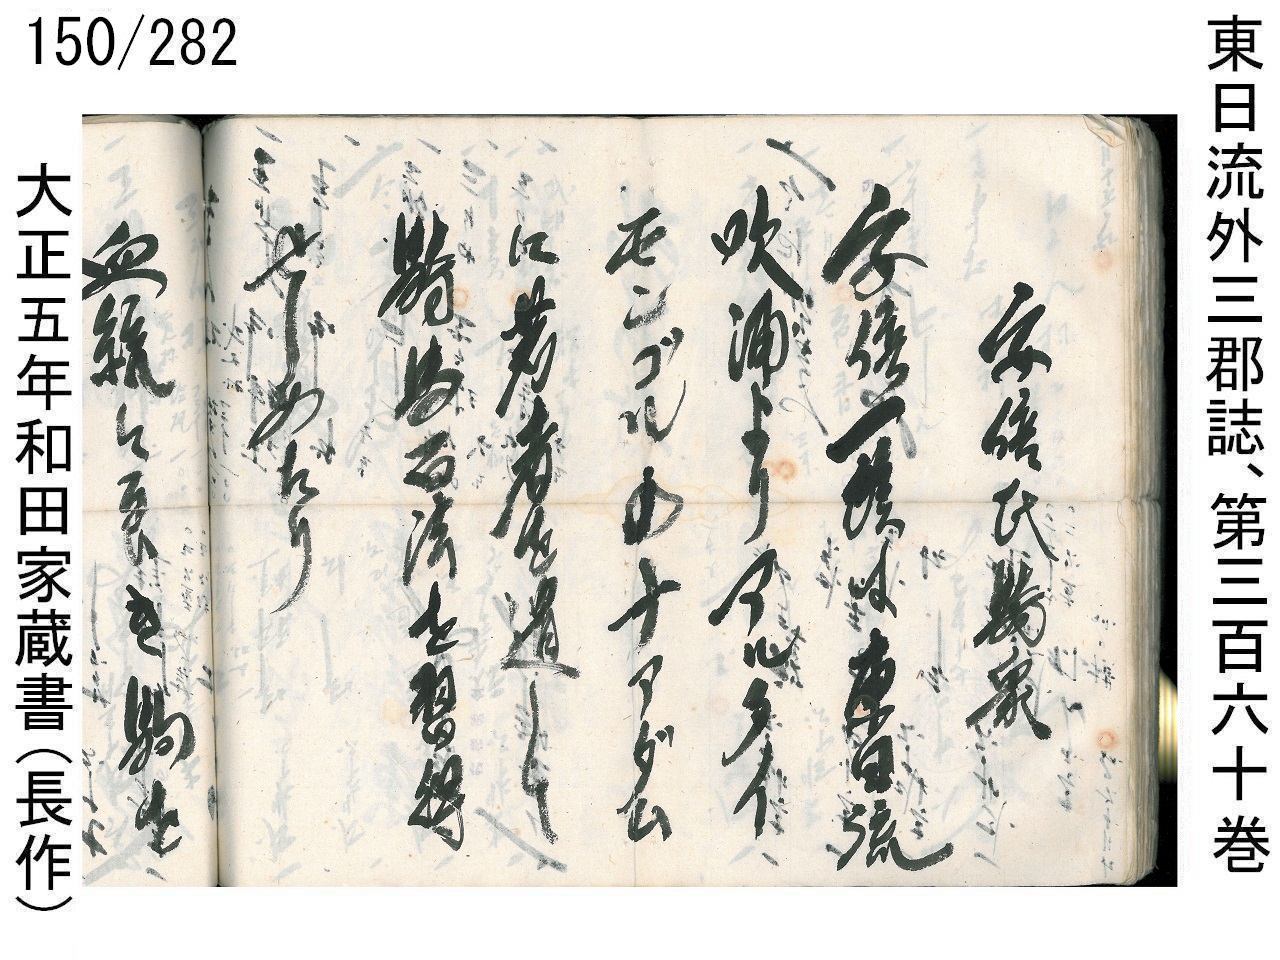 150/282
東日流外三郡誌、第三百六十巻
安倍氏騎衆
安倍一族は東日流
吹浦よりアルタイ
モンゴルのナアダム
に若者を遣して
騎馬百法を習得
せしめたり
血統に良き駒を
大正五年和田家蔵書(長作)